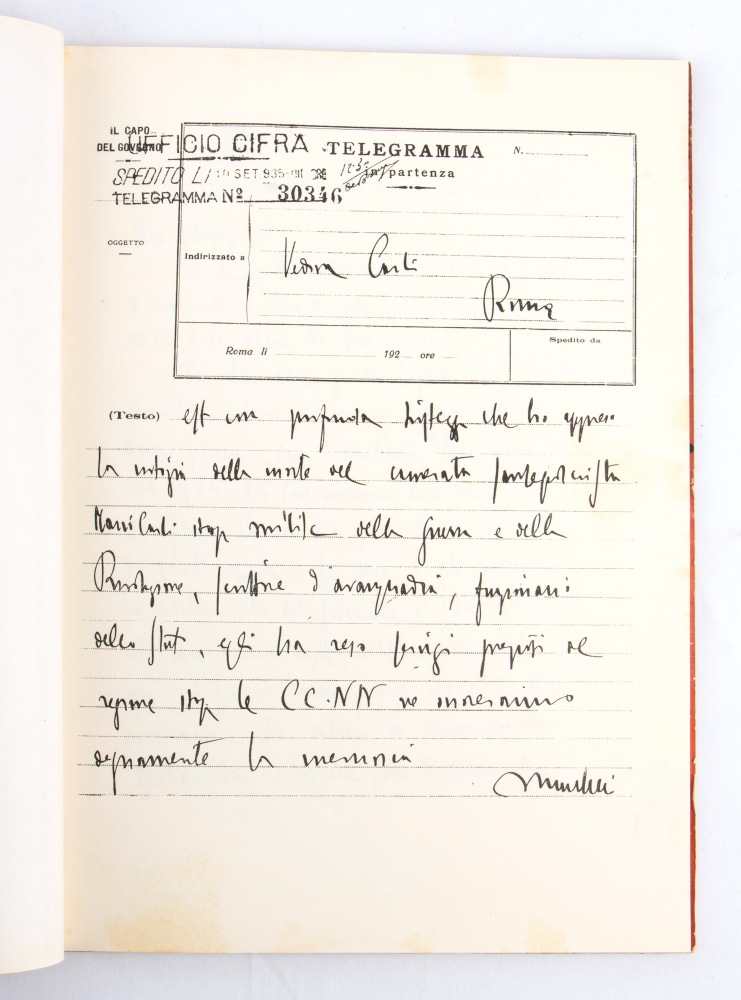 IL CAPO
DEL GOVERNO
UFFICIO CIFRA
TELEGRAMMA N.
SPEDITO LI SET 935 ORE
partenza
TELEGRAMMA Nº 30346
OGGETTO
Indirizzato a
Vedova Carli
Roma
Spedito da
Roma li 192 ore
(Testo) est con profonda tristezza che ho appreso
la notizia della morte del camerata sansepolcrista
Mario Carli stop milite della guerra e della
Rivoluzione, scrittore d'avanguardia, funzionario
dello Stato, egli ha reso servigi preziosi al
regime stop le CC.NN ne onoreranno
degnamente la memoria
Mussolini